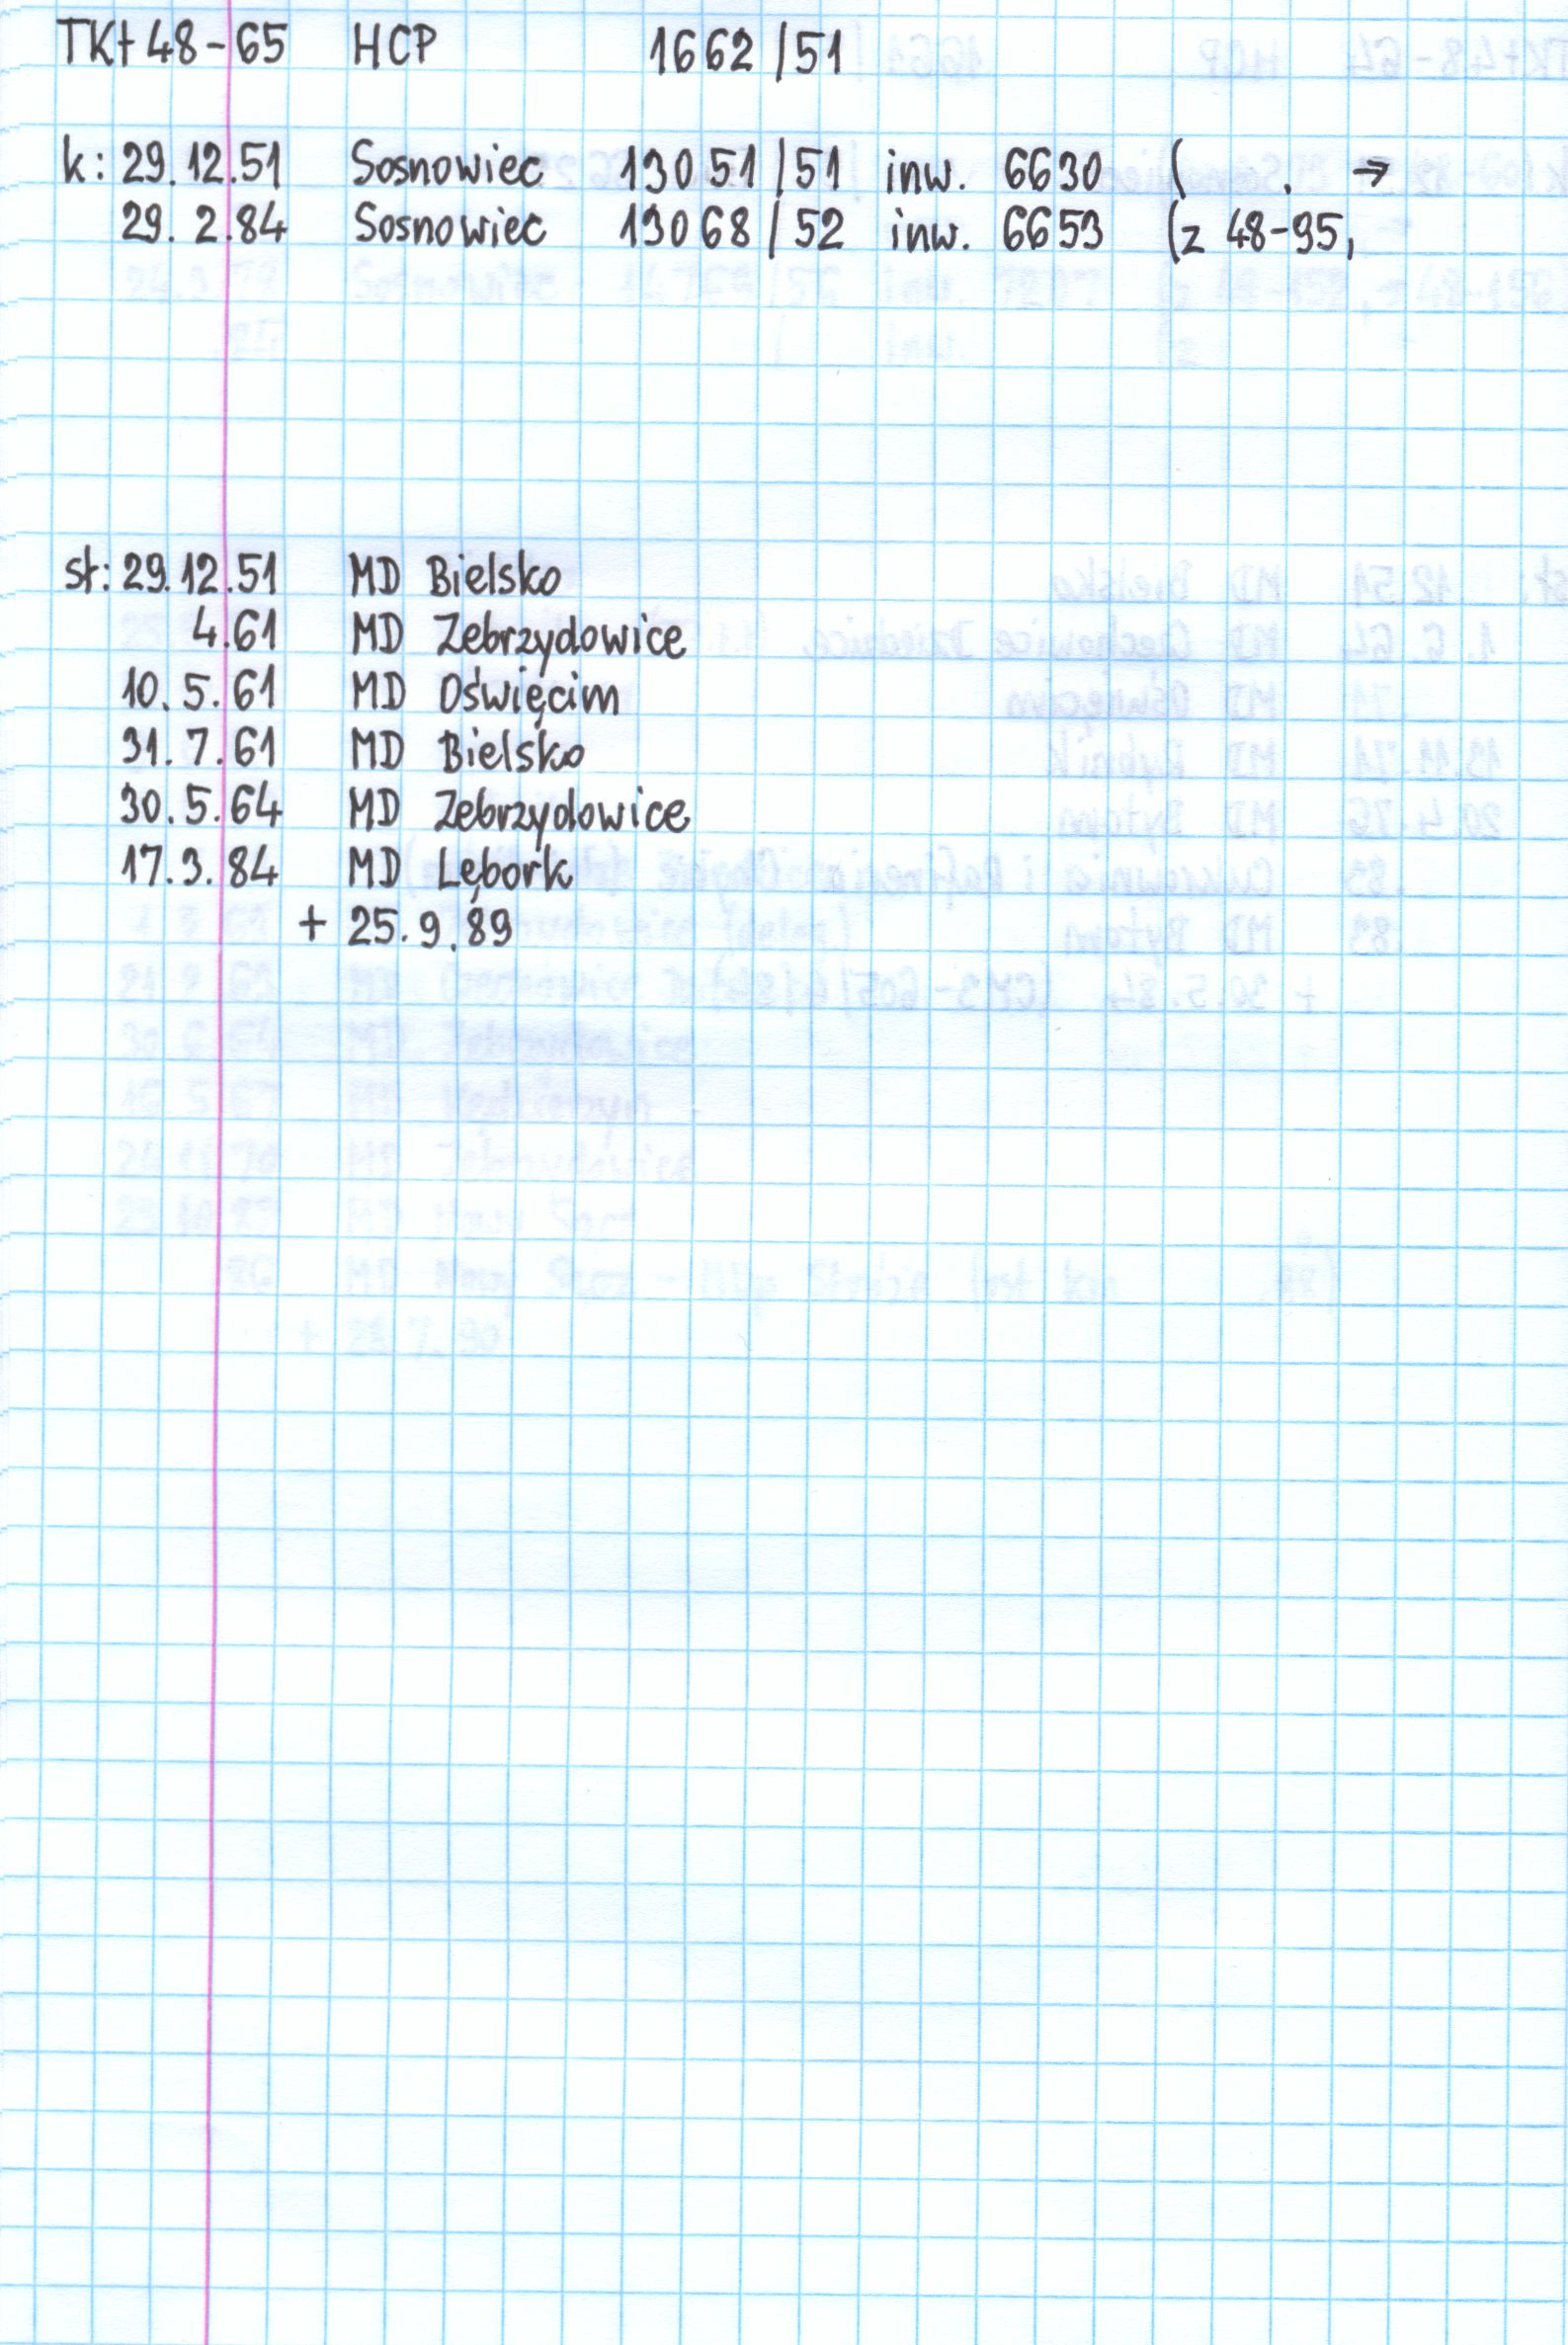 TKt 48-65 HCP 1662/51
k: 29.12.51 Sosnowiec 13051/51 inw. 6630 ( . →
29. 2.84 Sosnowiec 13068/52 inw. 6653 (z 48-95,
st: 29.12.51 MD Bielsko
4.61 MD Zebrzydowice
10. 5.61 MD Oświęcim
31. 7.61 MD Bielsko
30. 5.64 MD Zebrzydowice
17. 3. 84 MD Lębork
+ 25. 9. 89